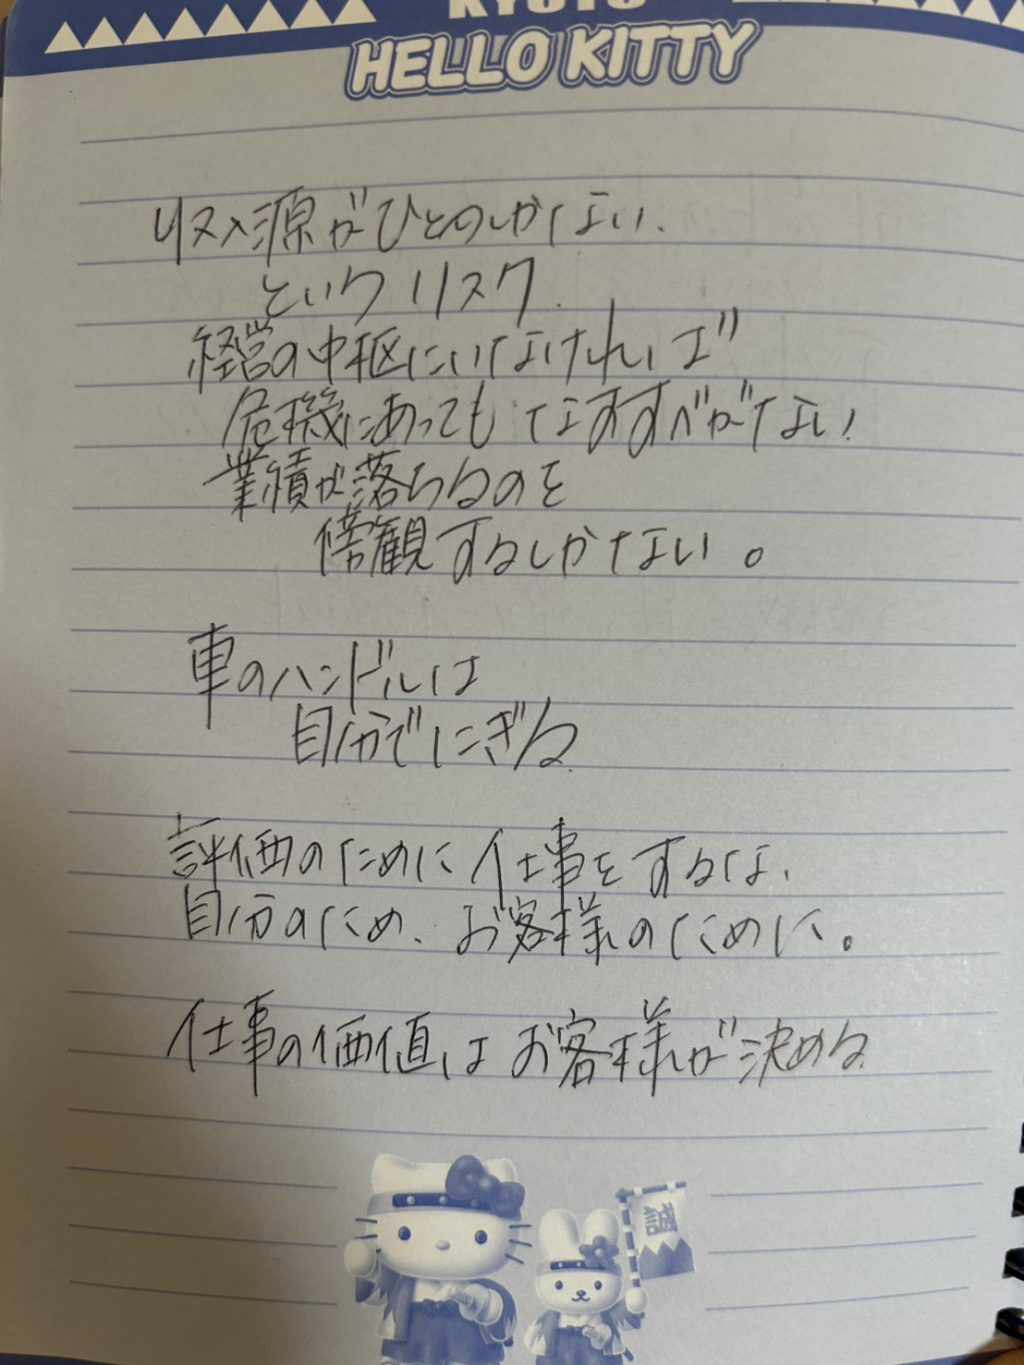 KYOTO
HELLO KITTY
収入源がひとつしかない、
というリスク.
経営の中枢にいなければ
危機にあってもなすすべがない
業績が落ちるのを
傍観するしかない。
車のハンドルは
自分でにぎる
評価のために仕事をするな、
自分のため、お客様のために。
仕事の価値はお客様が決める
誠